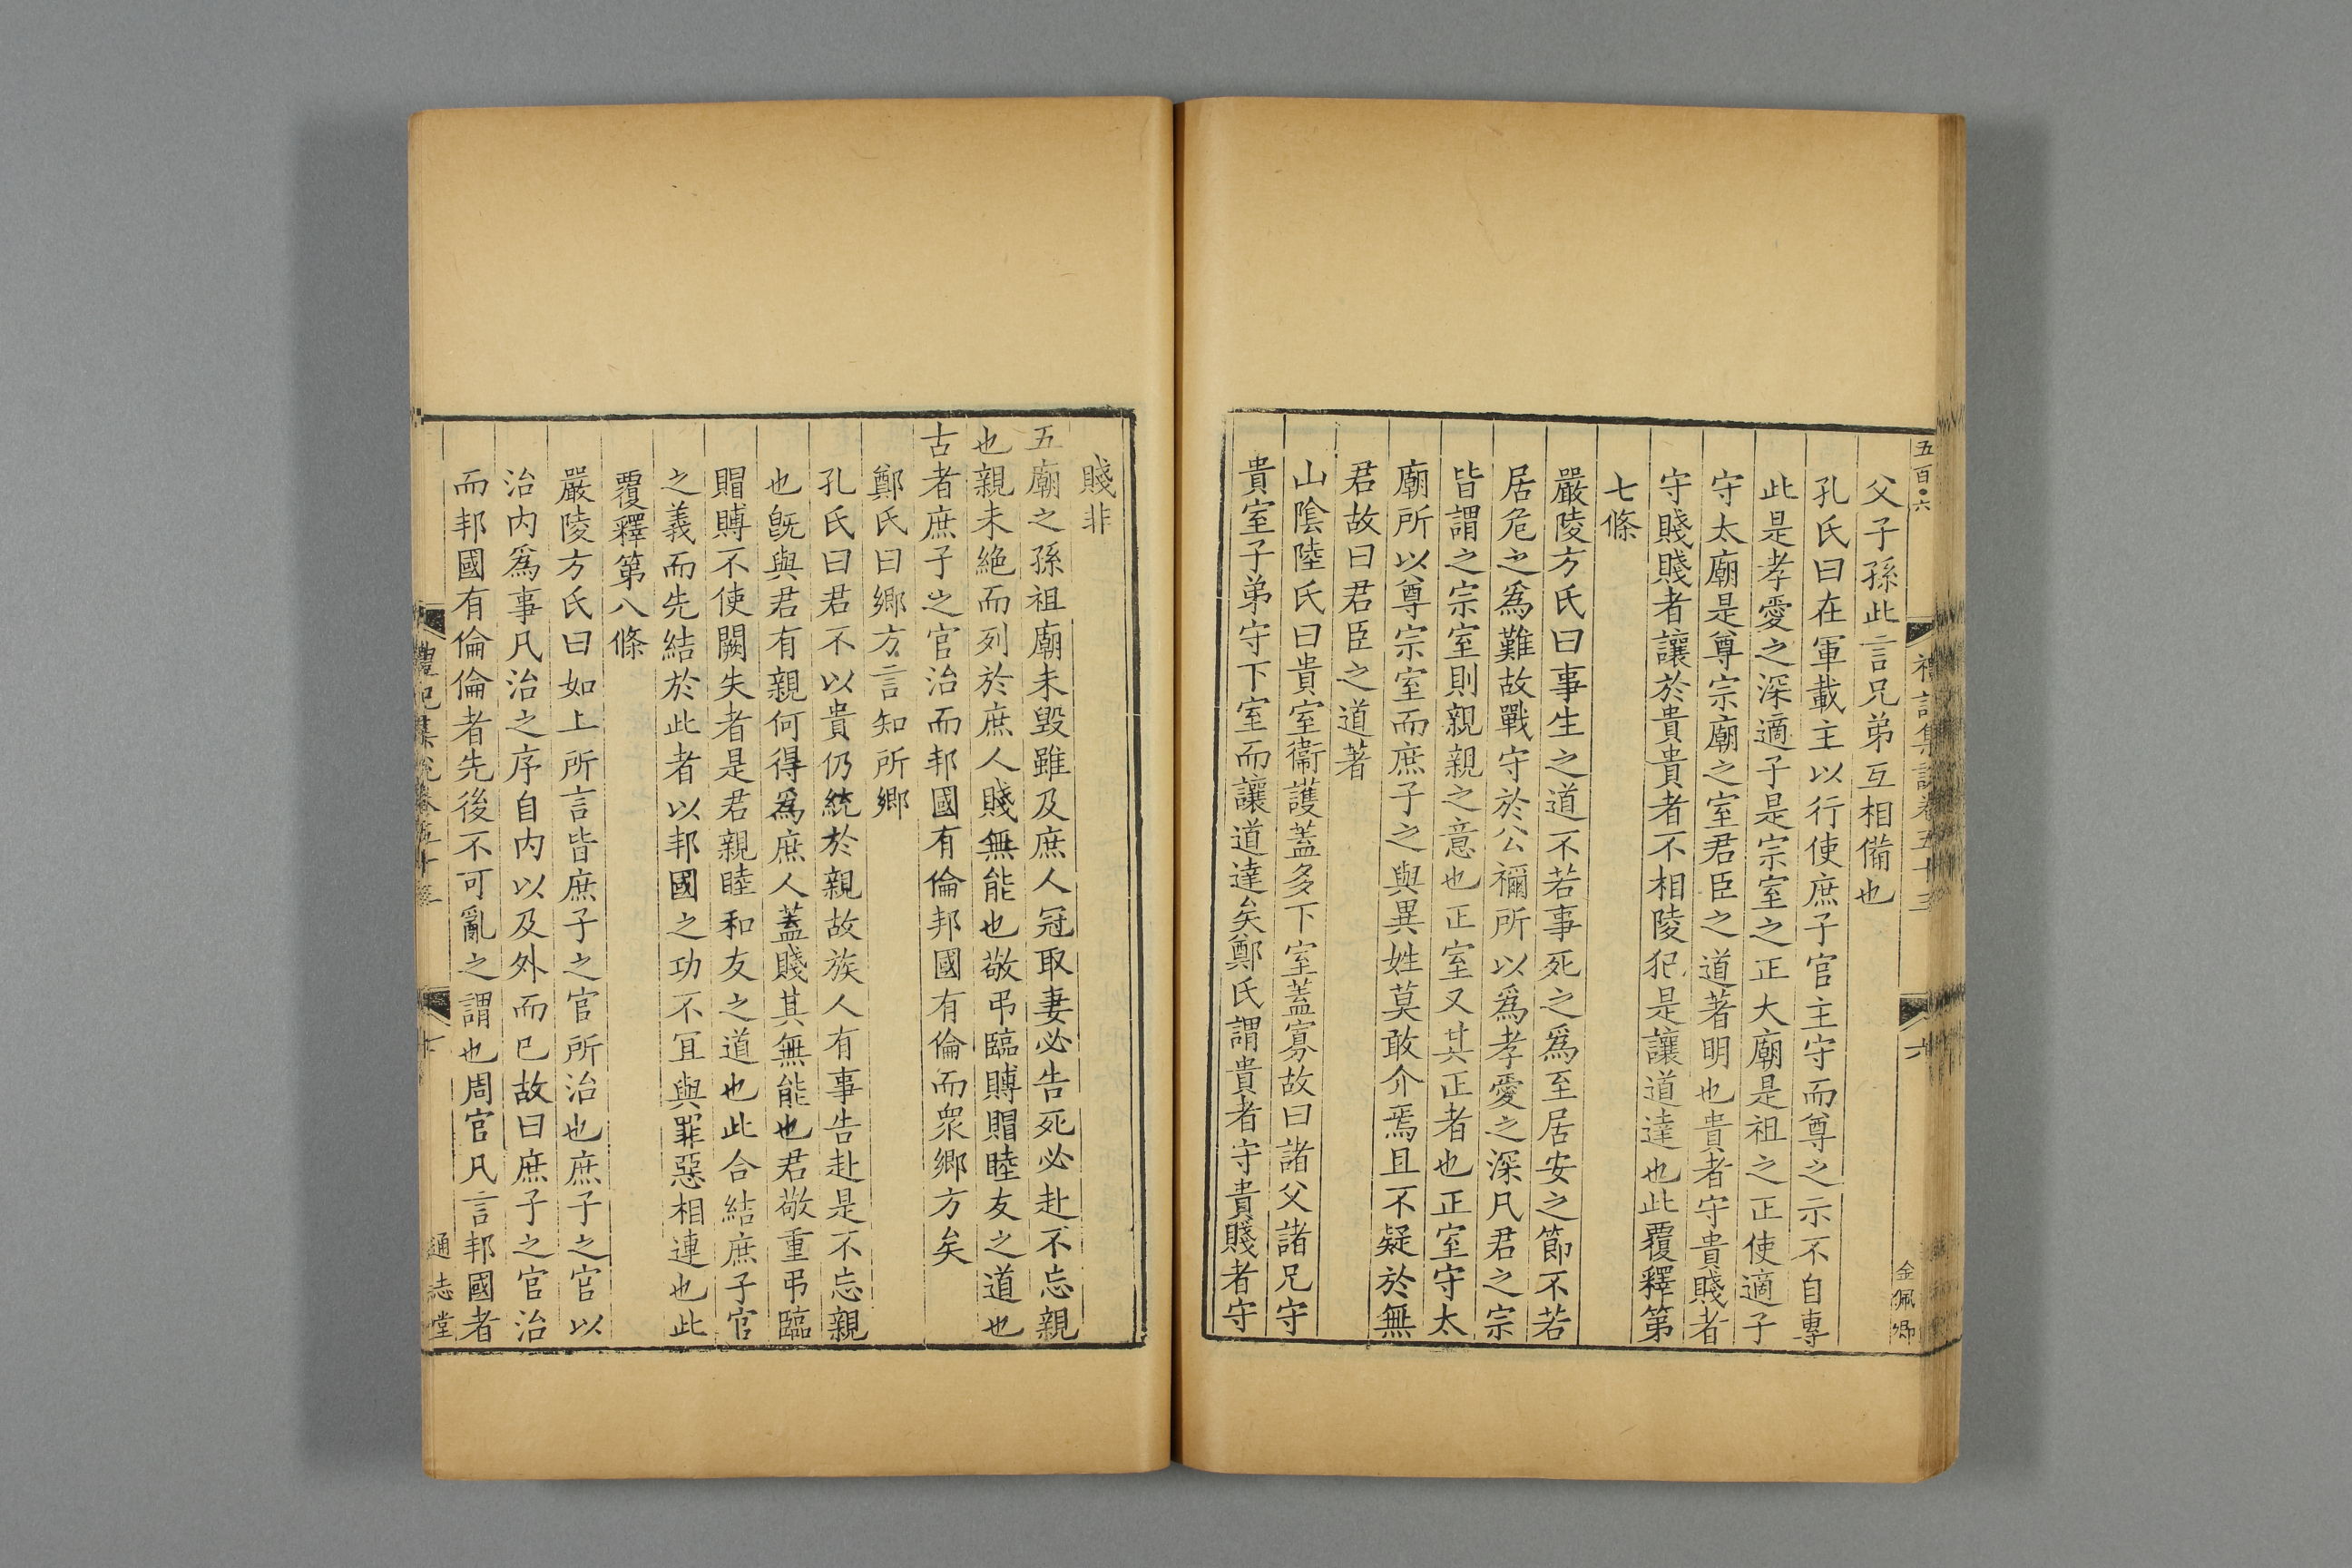 五百六
金佩卿
父子孫此言兄弟互相備也
孔氏曰在軍載主以行使庶子官主守而尊之示不自專
此是孝愛之深適子是宗室之正大廟是祖之正使適子
守太廟是尊宗廟之室君臣之道著明也貴者守貴賤者
守賤賤者讓於貴貴者不相陵犯是讓道達也此覆釋第
七條
嚴陵方氏曰事生之道不若事死之爲至居安之節不若
居危之爲難故戰守於公禰所以爲孝愛之深凡君之宗
皆謂之宗室則親親之意也正室又其正者也正室守太
廟所以尊宗室而庶子之與異姓莫敢介焉且不疑於無
君故曰君臣之道著
山陰陸氏曰貴室衞護蓋多下室蓋寡故曰諸父諸兄守
貴室子弟守下室而讓道達矣鄭氏謂貴者守貴賤者守
賤非
五廟之孫祖廟未毀雖及庶人冠取妻必告死必赴不忘親
也親未絶而列於庶人賤無能也敬弔臨賻賵睦友之道也
古者庶子之官治而邦國有倫邦國有倫而衆鄉方矣
鄭氏曰鄉方言知所鄉
孔氏曰君不以貴仍統於親故族人有事告赴是不忘親
也旣與君有親何得爲庶人蓋賤其無能也君敬重弔臨
賵賻不使闕失者是君親睦和友之道也此合結庶子官
之義而先結於此者以邦國之功不冝與罪惡相連也此
覆釋第八條
嚴陵方氏曰如上所言皆庶子之官所治也庶子之官以
治内爲事凡治之序自内以及外而巳故曰庶子之官治
而邦國有倫倫者先後不可亂之謂也周官凡言邦國者
通志堂